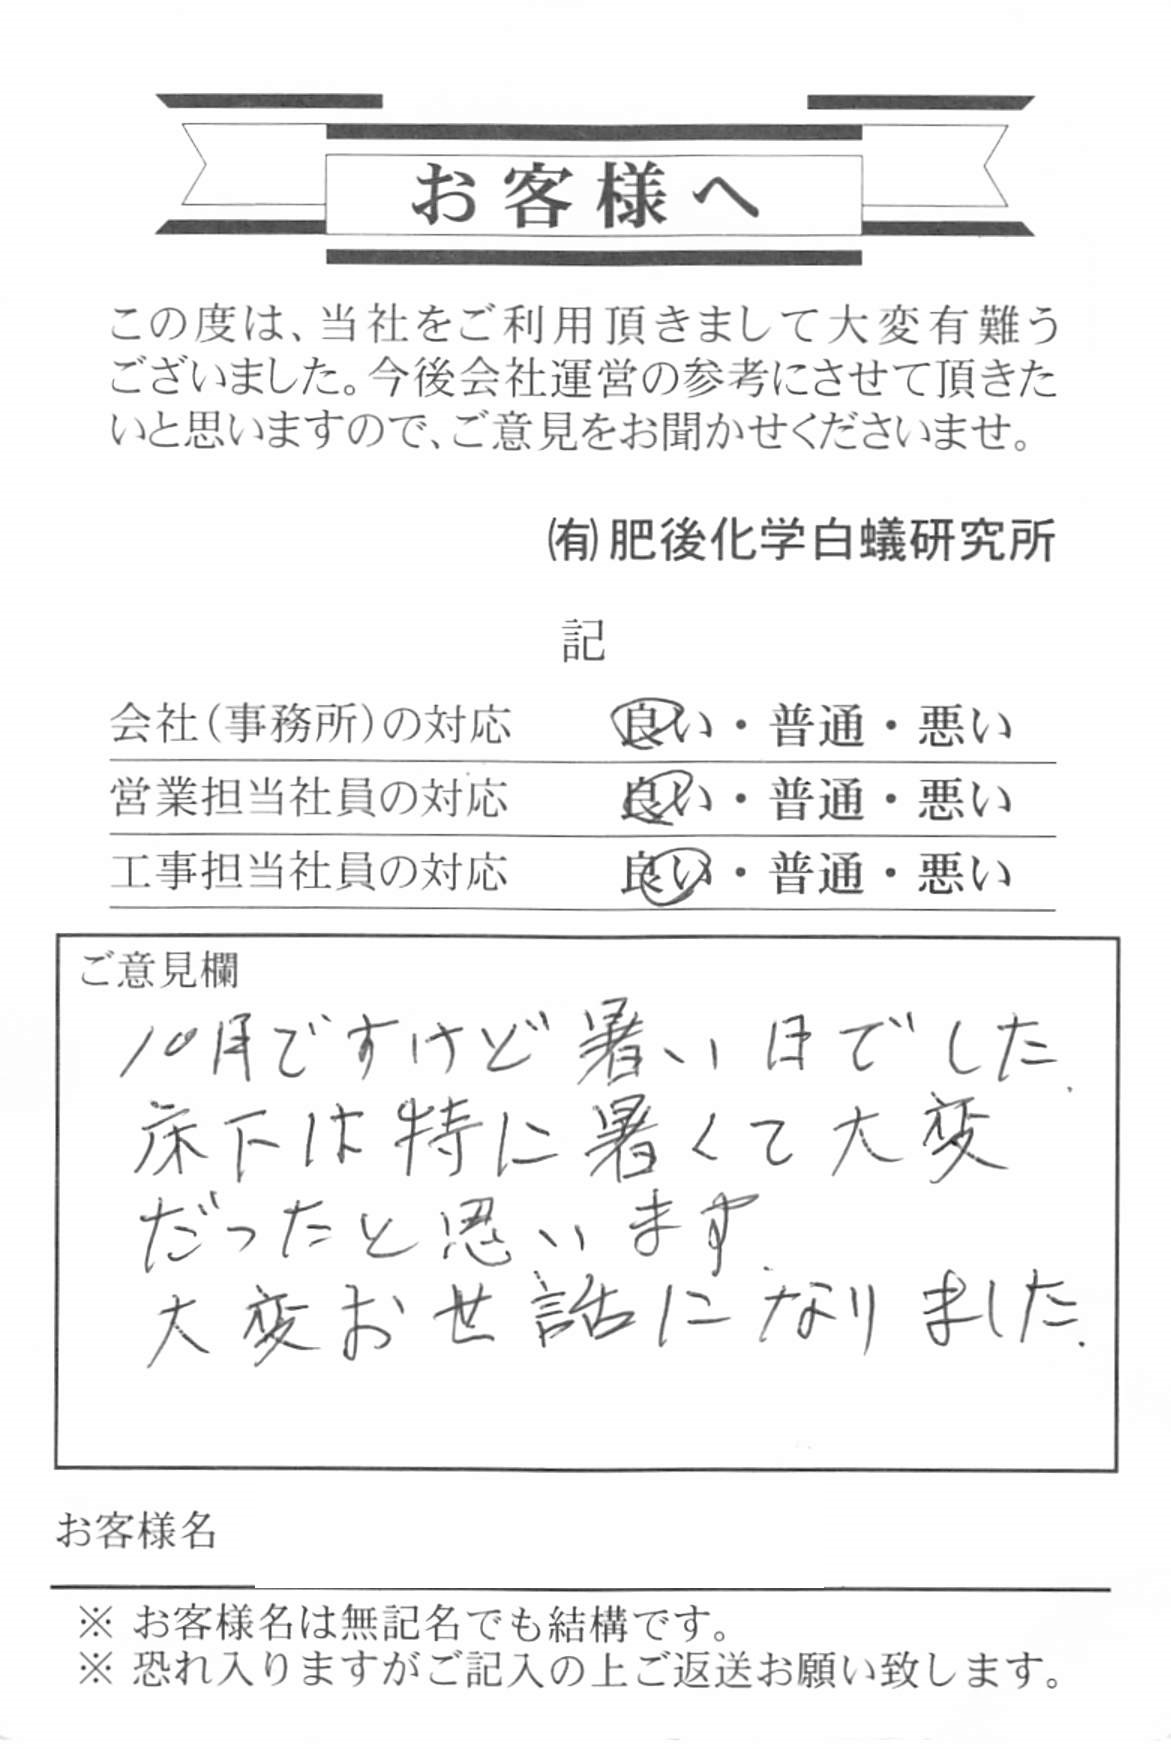 お客様へ
この度は、当社をご利用頂きまして大変有難う
ございました。今後会社運営の参考にさせて頂きた
いと思いますので、ご意見をお聞かせくださいませ。
㈲肥後化学白蟻研究所
記
会社(事務所)の対応 良い・普通・悪い
営業担当社員の対応 良い・普通・悪い
工事担当社員の対応 良い・普通・悪い
ご意見欄
10月ですけど暑い日でした.
床下は特に暑くて大変
だったと思います.
大変お世話になりました.
お客様名
※ お客様名は無記名でも結構です。
※ 恐れ入りますがご記入の上ご返送お願い致します。